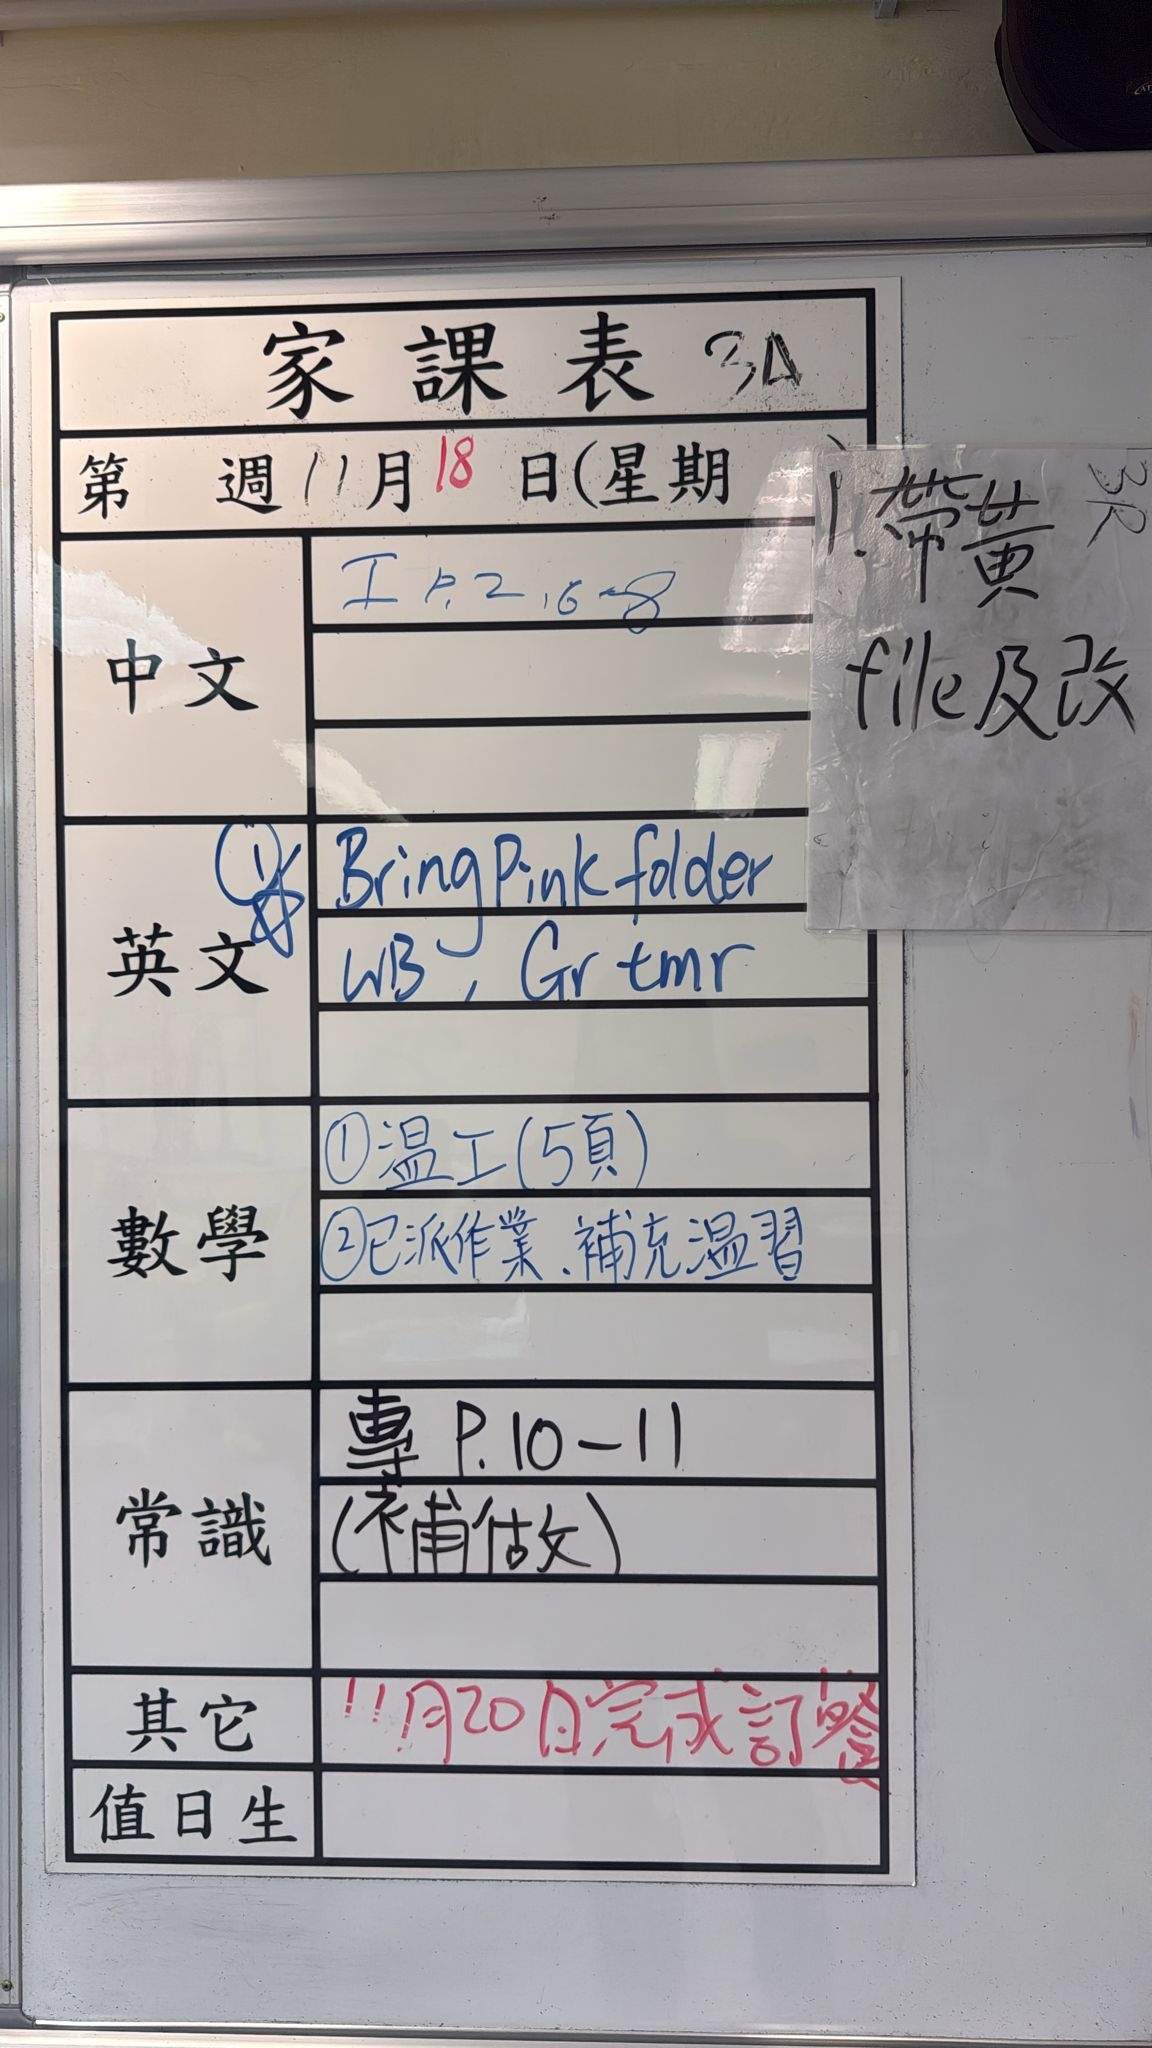 家課表 3A
第 週 11月18日(星期 )
1.帶黃 3R
file及改
中文
工 P.2,6-8
英文
① Bring Pink folder
WB, Gr tmr
數學
①温工(5頁)
②已派作業、補充温習
常識
專 P.10-11
(補估攵)
其它
11月20日完成訂餐
值日生